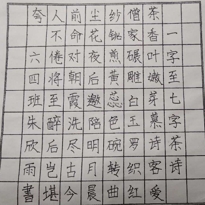 一字至七字茶诗
茶香叶嫩芽慕诗客爱
僧家碾雕白玉罗织红
纱铫煎黄蕊色碗转曲
尘花夜后邀陪明月晨
前命对朝霞洗尽古今
人不倦将至醉后岂堪
夸
六四班朱雨書